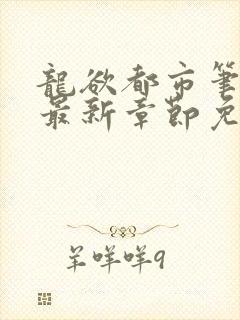 龍欲都市筆
最新章節免
羊咩咩9